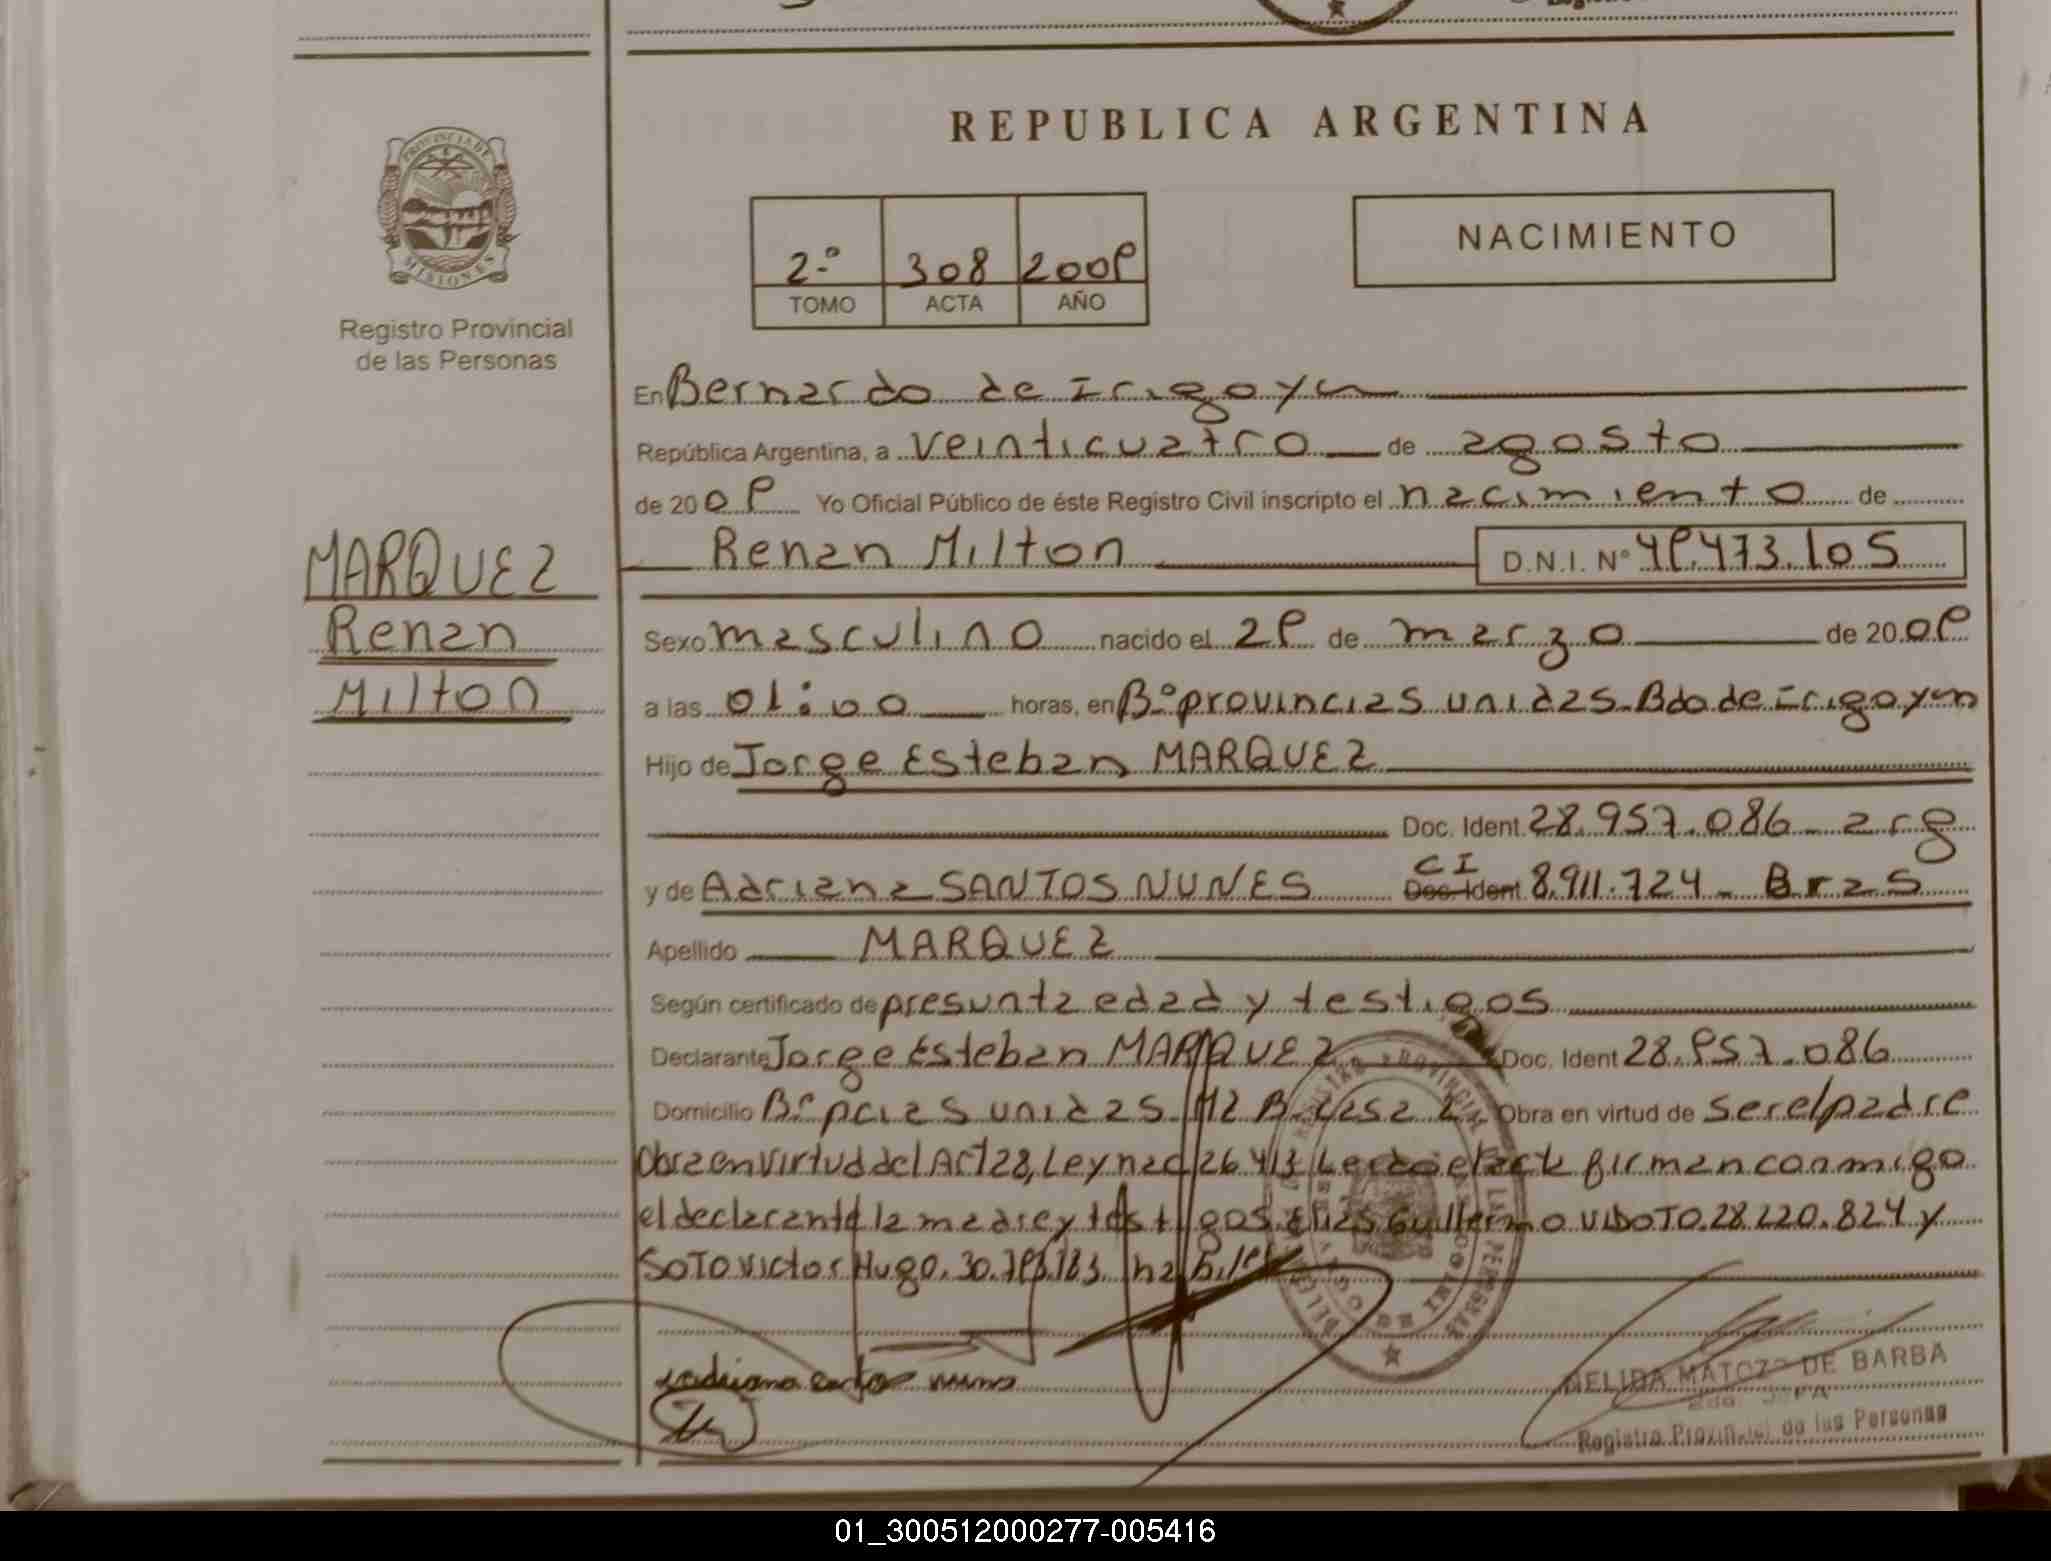 REPUBLICA ARGENTINA
PROVINCIA DE
MISIONES
Registro Provincial
de las Personas
2º 308 2009
TOMO ACTA AÑO
NACIMIENTO
En Bernardo de Irigoyen
República Argentina, a veinticuatro de agosto
de 2009 Yo Oficial Público de éste Registro Civil inscripto el nacimiento de
Renan Milton D.N.I. Nº 49.473.105
MARQUEZ
Renan
Milton
Sexo masculino nacido el 29 de marzo de 2009
a las 01:00 horas, en Bº provincias unidas. Bdo de Irigoyen
Hijo de Jorge Esteban MARQUEZ
Doc. Ident. 28.957.086 - arg
CI
y de Adriana SANTOS NUNES Doc. Ident 8.911.724 - Bras
Apellido MARQUEZ
Según certificado de presunta edad y testigos
Declarante Jorge Esteban MARQUEZ Doc. Ident 28.957.086
Domicilio Bº pcias unidas. M2 B. casa 2 Obra en virtud de ser el padre
Obra en virtud del Art 28, Ley nac 26.413 Leido el acta firman conmigo
el declarante la madre y testigos. Elias Guillermo VIDOTO. 28.220.824 y
SOTO victor Hugo. 30.793.183. habiles
NELIDA MATOZO DE BARBA
2da. JEFA
Registro Provincial de las Personas
01_300512000277-005416